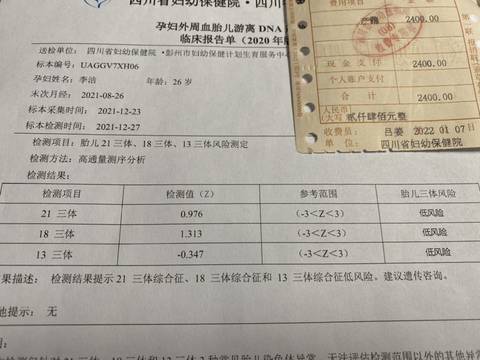 四川省妇幼保健院·四川
孕妇外周血胎儿游离 DNA
临床报告单（2020 年版
送检单位： 四川省妇幼保健院·彭州市妇幼保健计划生育服务中心
标本编号：UAGGV7XH06
孕妇姓名：李洁 年龄：26 岁
末次月经：2021-08-26
标本采集时间：2021-12-23
标本检测时间：2021-12-27
检测项目：胎儿 21 三体、18 三体、13 三体风险测定
检测方法：高通量测序分析
检测结果：
检测项目 检测值（Z） 参考范围 胎儿三体风险
21 三体 0.976 （-3＜Z＜3） 低风险
18 三体 1.313 （-3＜Z＜3） 低风险
13 三体 -0.347 （-3＜Z＜3） 低风险
结果描述： 检测结果提示 21 三体综合征、18 三体综合征和 13 三体综合征低风险。建议遗传咨询。
他提示： 无
费用项目
2400.00
现 金 支 付 2400.00
个人账户支付
合 计 2400.00
人民币
(大写) 贰仟肆佰元整
收费员： 吕姜 2022 01 07日
单 位： 四川省妇幼保健院